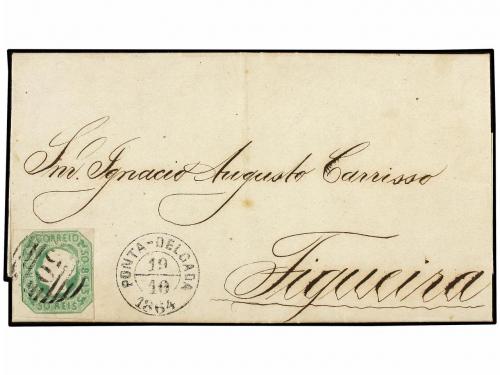 Snr. Ignacio Augusto Carrisso
Figueira
PONTA-DELGADA
19
10
1864
CORREIO
50 REIS
50